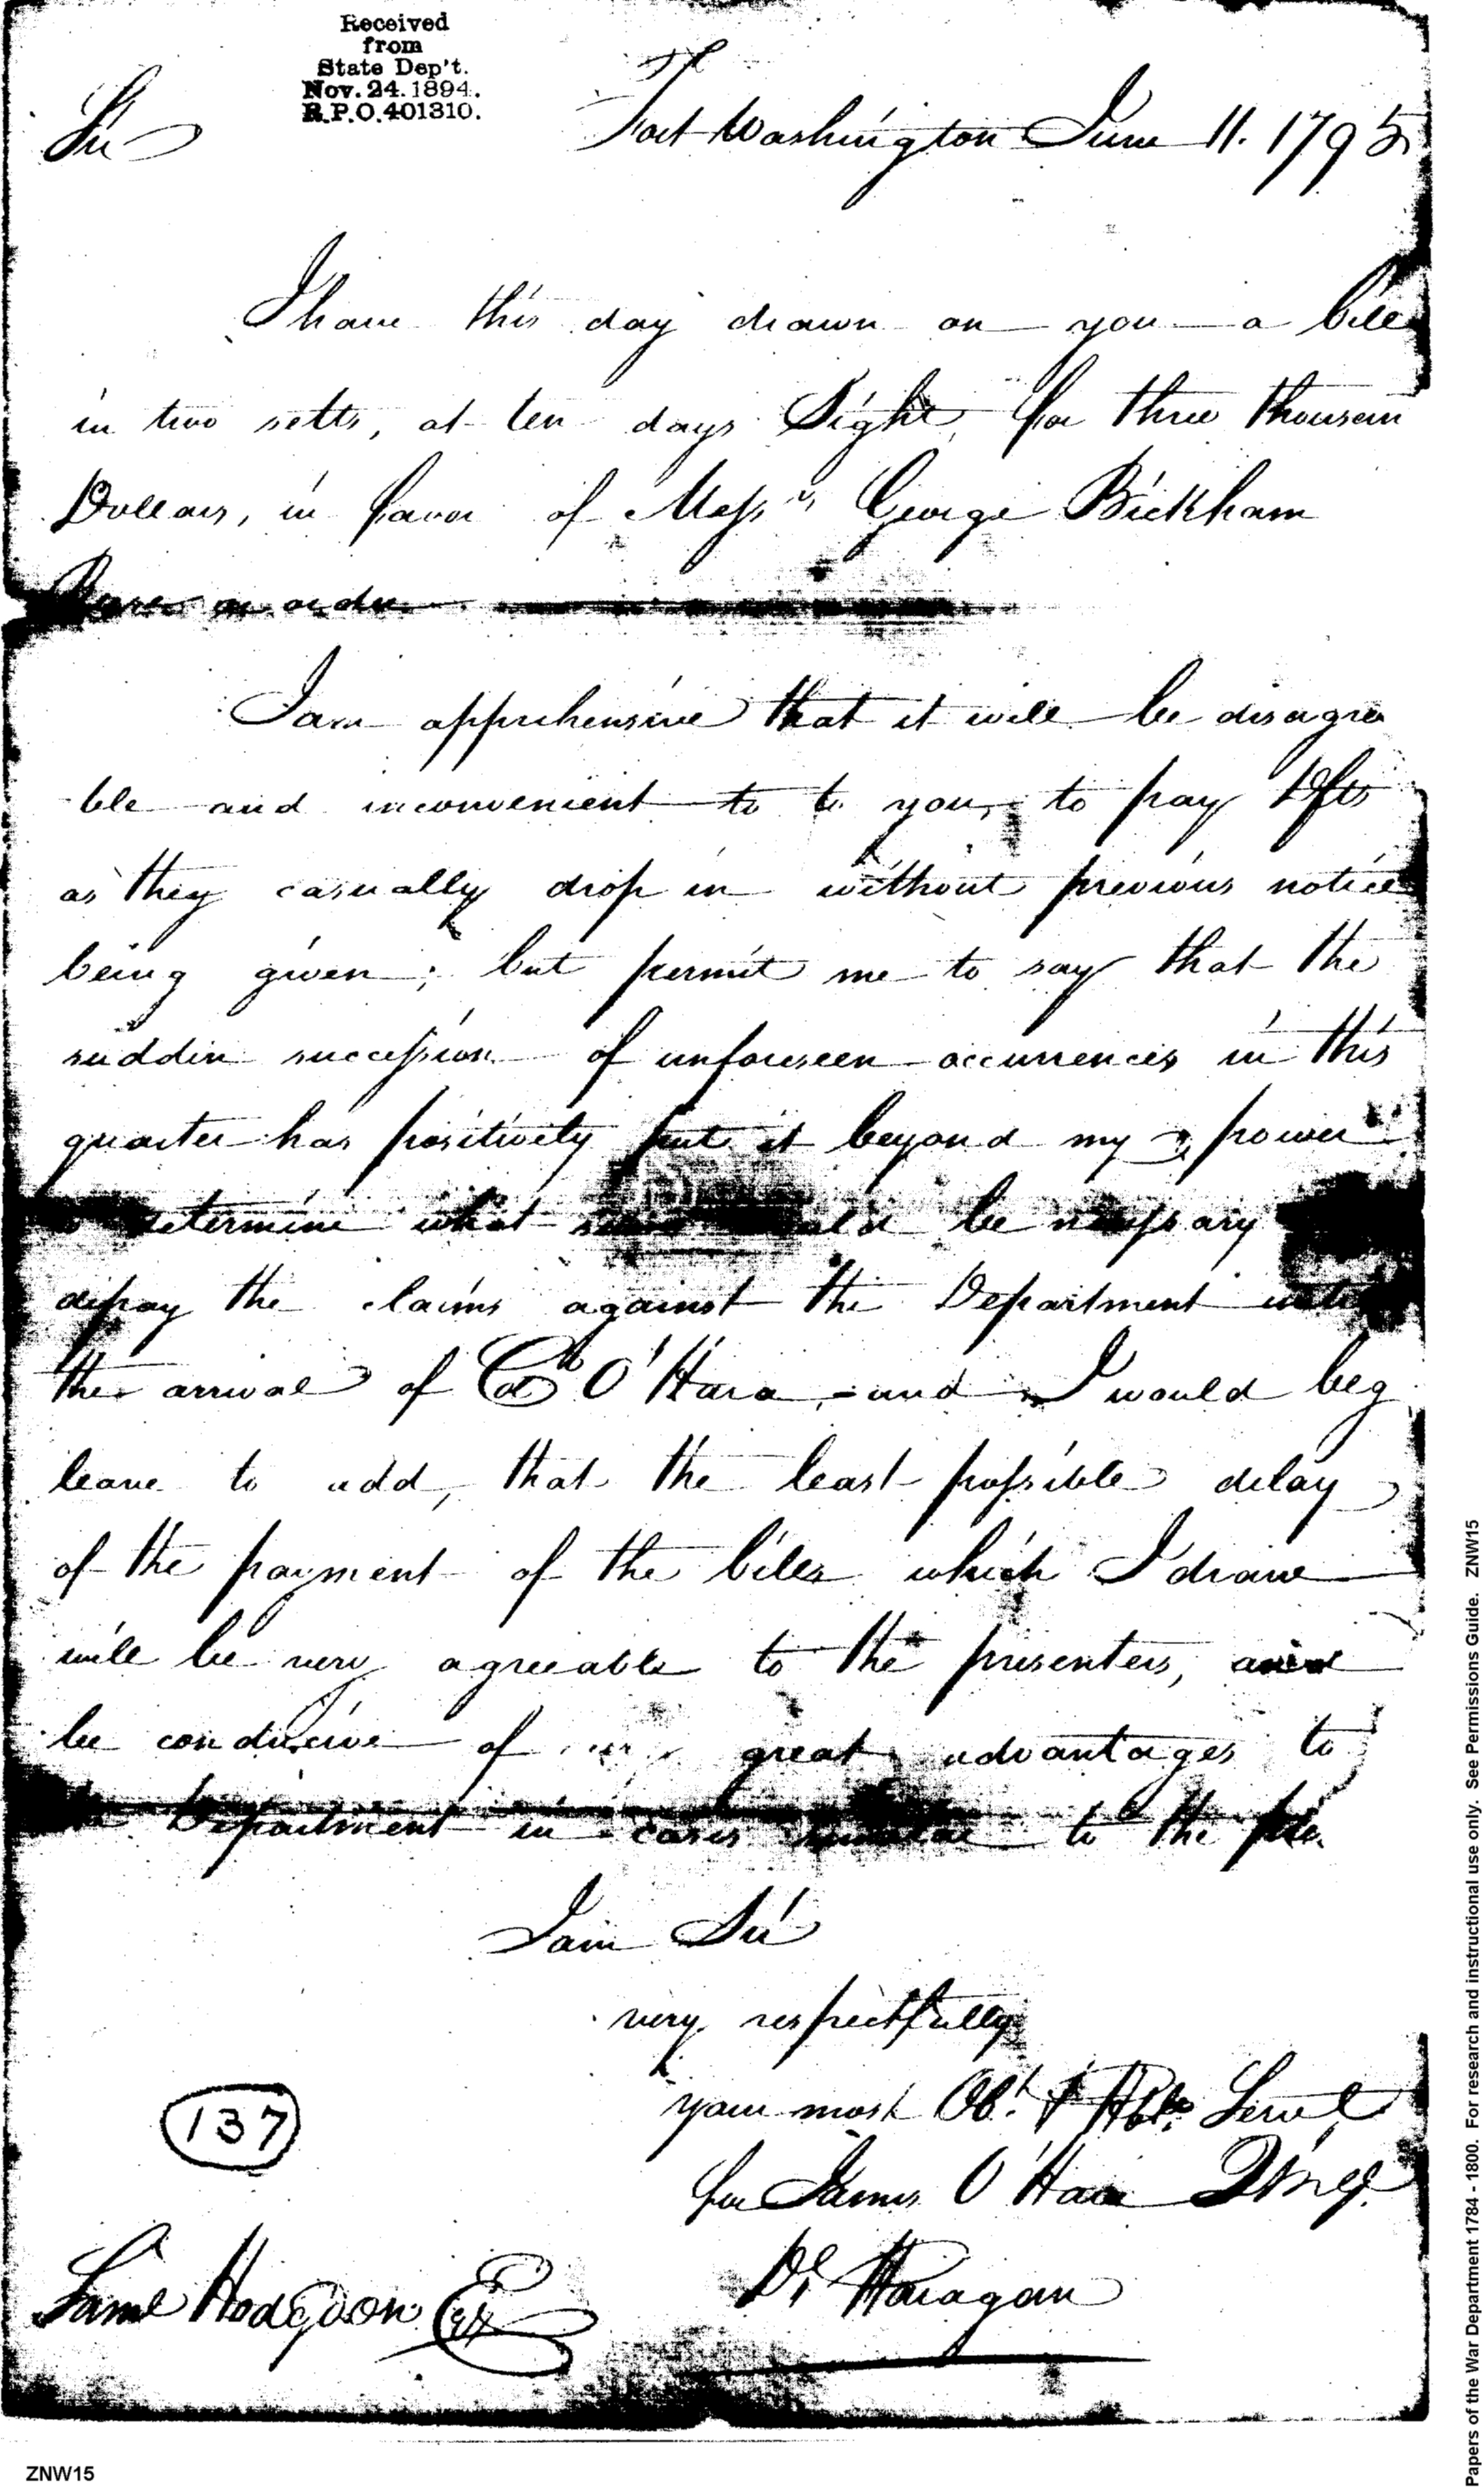 Received
from
State Dep't.
Nov. 24. 1894.
R.P.O. 401310.
Sir
Fort Washington June 11. 1795
I have this day drawn on you a bill
in two setts, at ten days Sight, for three thousan
Dollars, in favor of Messrs George Bickham
or order
I am apprehensive that it will be disagrea
ble and inconvenient to to you, to pay Dfts
as they casually drop in without previous notice
being given; but permit me to say that the
suddin succession of unforeseen occurrences in this
quarter has positively put it beyond my power
determine what be necessary
defray the claims against the Department until
the arrival of Col O'Hara, and I would beg
leave to add, that the least possible delay
of the payment of the bills which I draw
will be very agreeable to the presenters, and
be conducive of great advantages to
Department in cases similar to the
I am Sir
very respectfully
your most Obt. & Hble. Servt
for James O'Hara QMG.
Dl Haragan
137
Saml Hodgdon Esq
ZNW15
Papers of the War Department 1784 - 1800. For research and instructional use only. See Permissions Guide. ZNW15